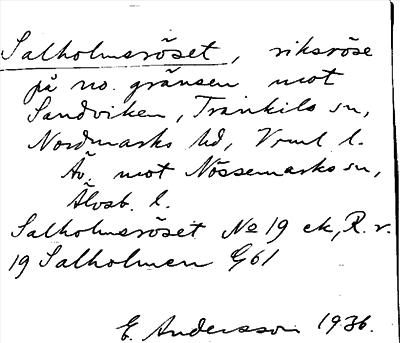 Salholmsröset, riksröse
på no. gränsen mot
Sandviken, Trankils sn,
Nordmarks hd, Vrml l.
Äv. mot Nössemarks sn,
Älvsb. l.
Salholmsröset No 19 ek, R. r.
19 Salholmen G61
E. Andersson 1936.